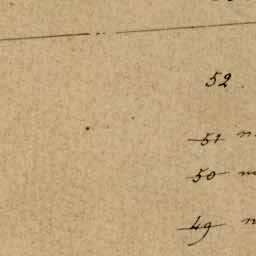 52.
51
50
49